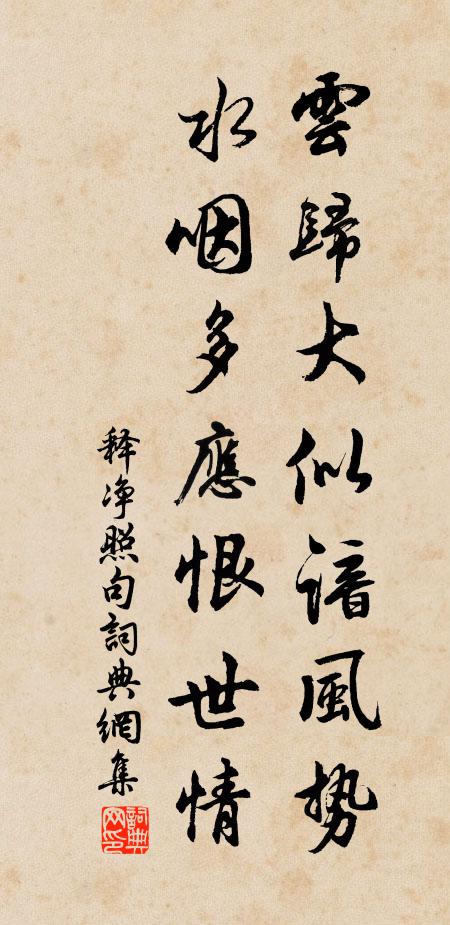 雲歸大似諳風勢
水咽多應恨世情
释净照句詞典網集
詞典网印